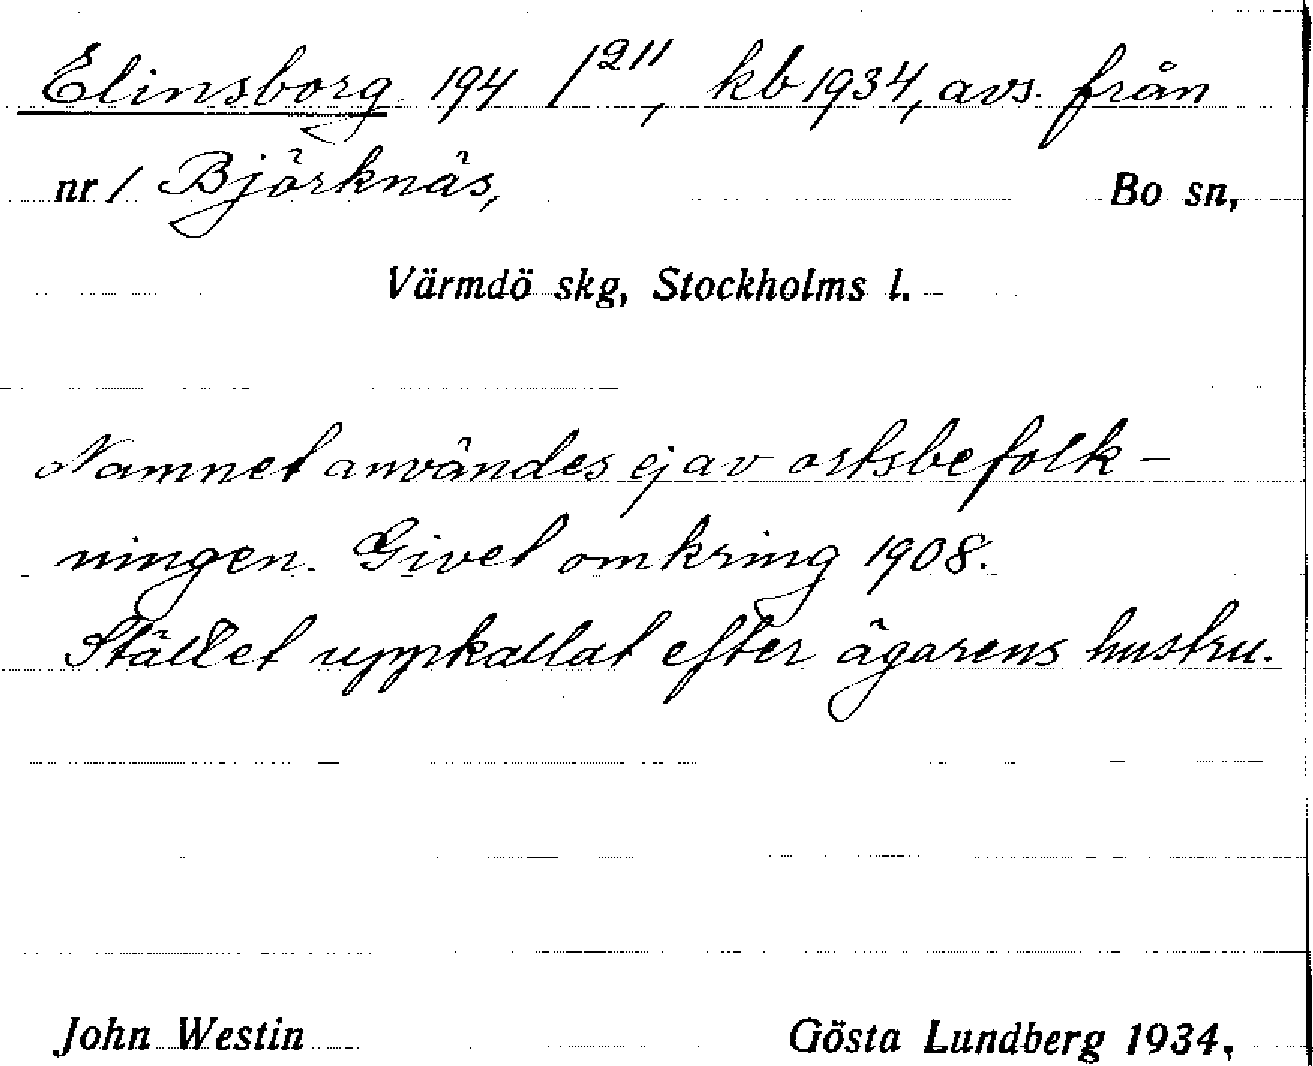 Elinsborg 194 1²¹¹, kb 1934, avs. från
nr 1 Björknäs, Bo sn,
Värmdö skg, Stockholms l.
Namnet användes ej av ortsbefolk-
ningen. Givet omkring 1908.
Stället uppkallat efter ägarens hustru.
John Westin Gösta Lundberg 1934,